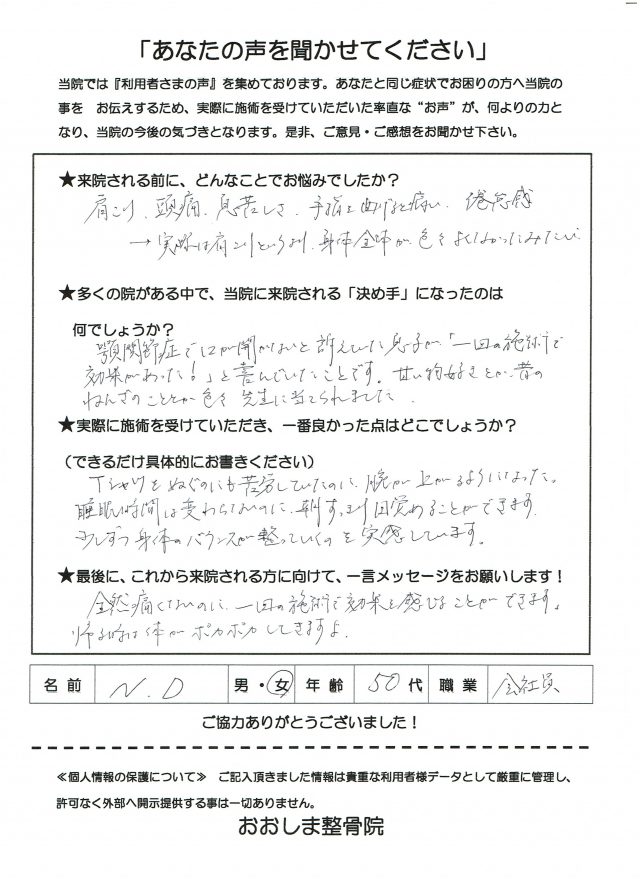 「あなたの声を聞かせてください」
当院では『利用者さまの声』を集めております。あなたと同じ症状でお困りの方へ当院の
事を お伝えするため、実際に施術を受けていただいた率直な“お声”が、何よりの力と
なり、当院の今後の気づきとなります。是非、ご意見・ご感想をお聞かせ下さい。
★来院される前に、どんなことでお悩みでしたか？
肩こり、頭痛、息苦しさ、手指を曲げると痛い、倦怠感
→実際は肩こりというより、身体全体が色々よくなかったみたい
★多くの院がある中で、当院に来院される「決め手」になったのは
何でしょうか？
顎関節症で口が開かないと訴えていた息子が「一回の施術で
効果があった！」と喜んでいたことです。甘い物好きとか、昔の
ねんざのこととか色々先生に当てられました。
★実際に施術を受けていただき、一番良かった点はどこでしょうか？
（できるだけ具体的にお書きください）
Tシャツをぬぐのにも苦労していたのに、腕が上がるようになった。
睡眠時間は変わらないのに、朝すっきり目覚めることができます。
少しずつ身体のバランスが整っていくのを実感しています。
★最後に、これから来院される方に向けて、一言メッセージをお願いします！
全然痛くないのに、一回の施術で効果を感じることができます。
帰る時は体がポカポカしてきますよ。
名前 N.D 男・女 年齢 50代 職業 会社員
ご協力ありがとうございました！
≪個人情報の保護について≫ ご記入頂きました情報は貴重な利用者様データとして厳重に管理し、
許可なく外部へ開示提供する事は一切ありません。
おおしま整骨院